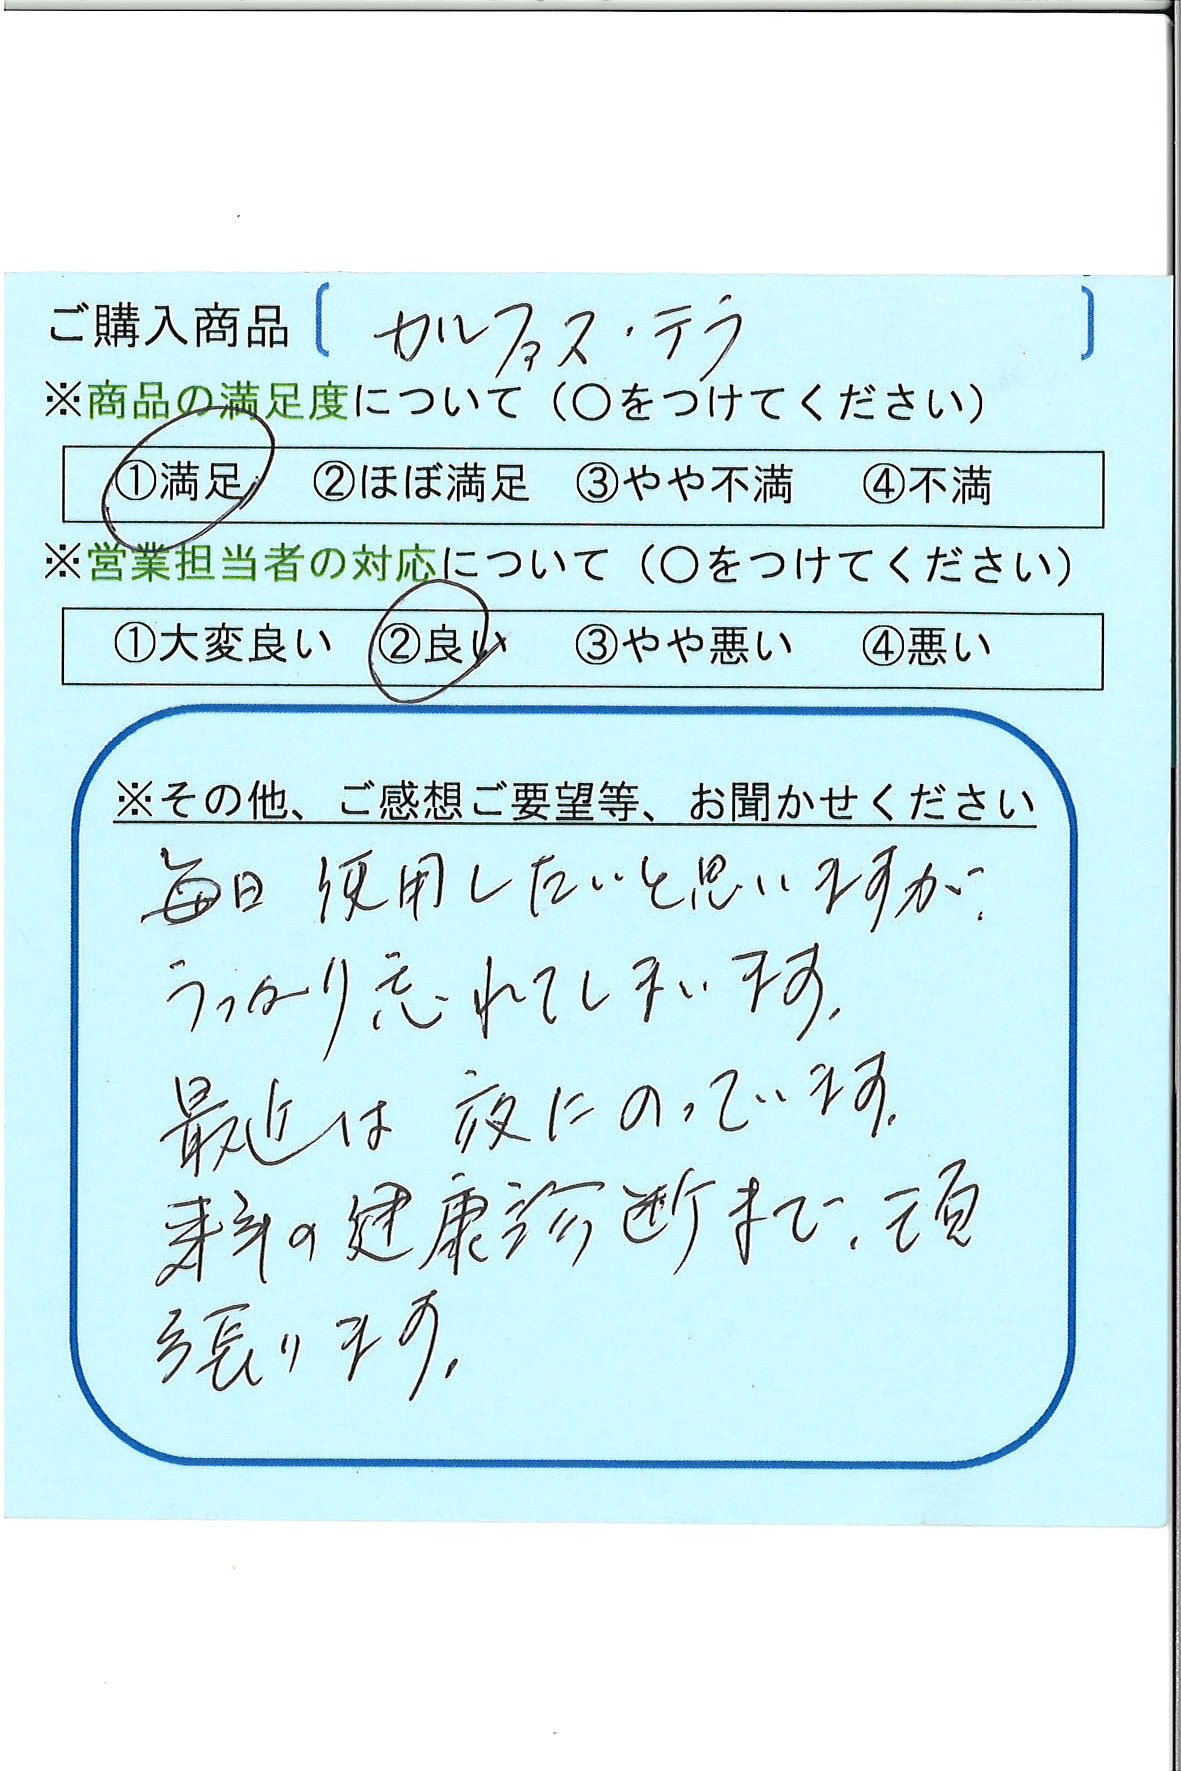 ご購入商品〔 カルファス・テラ 〕
※商品の満足度について（○をつけてください）
①満足 ②ほぼ満足 ③やや不満 ④不満
※営業担当者の対応について（○をつけてください）
①大変良い ②良い ③やや悪い ④悪い
※その他、ご感想ご要望等、お聞かせください
毎日 使用したいと思いますが、
うっかり忘れてしまいます。
最近は 夜にのっています。
来年の健康診断まで、頑
張ります。